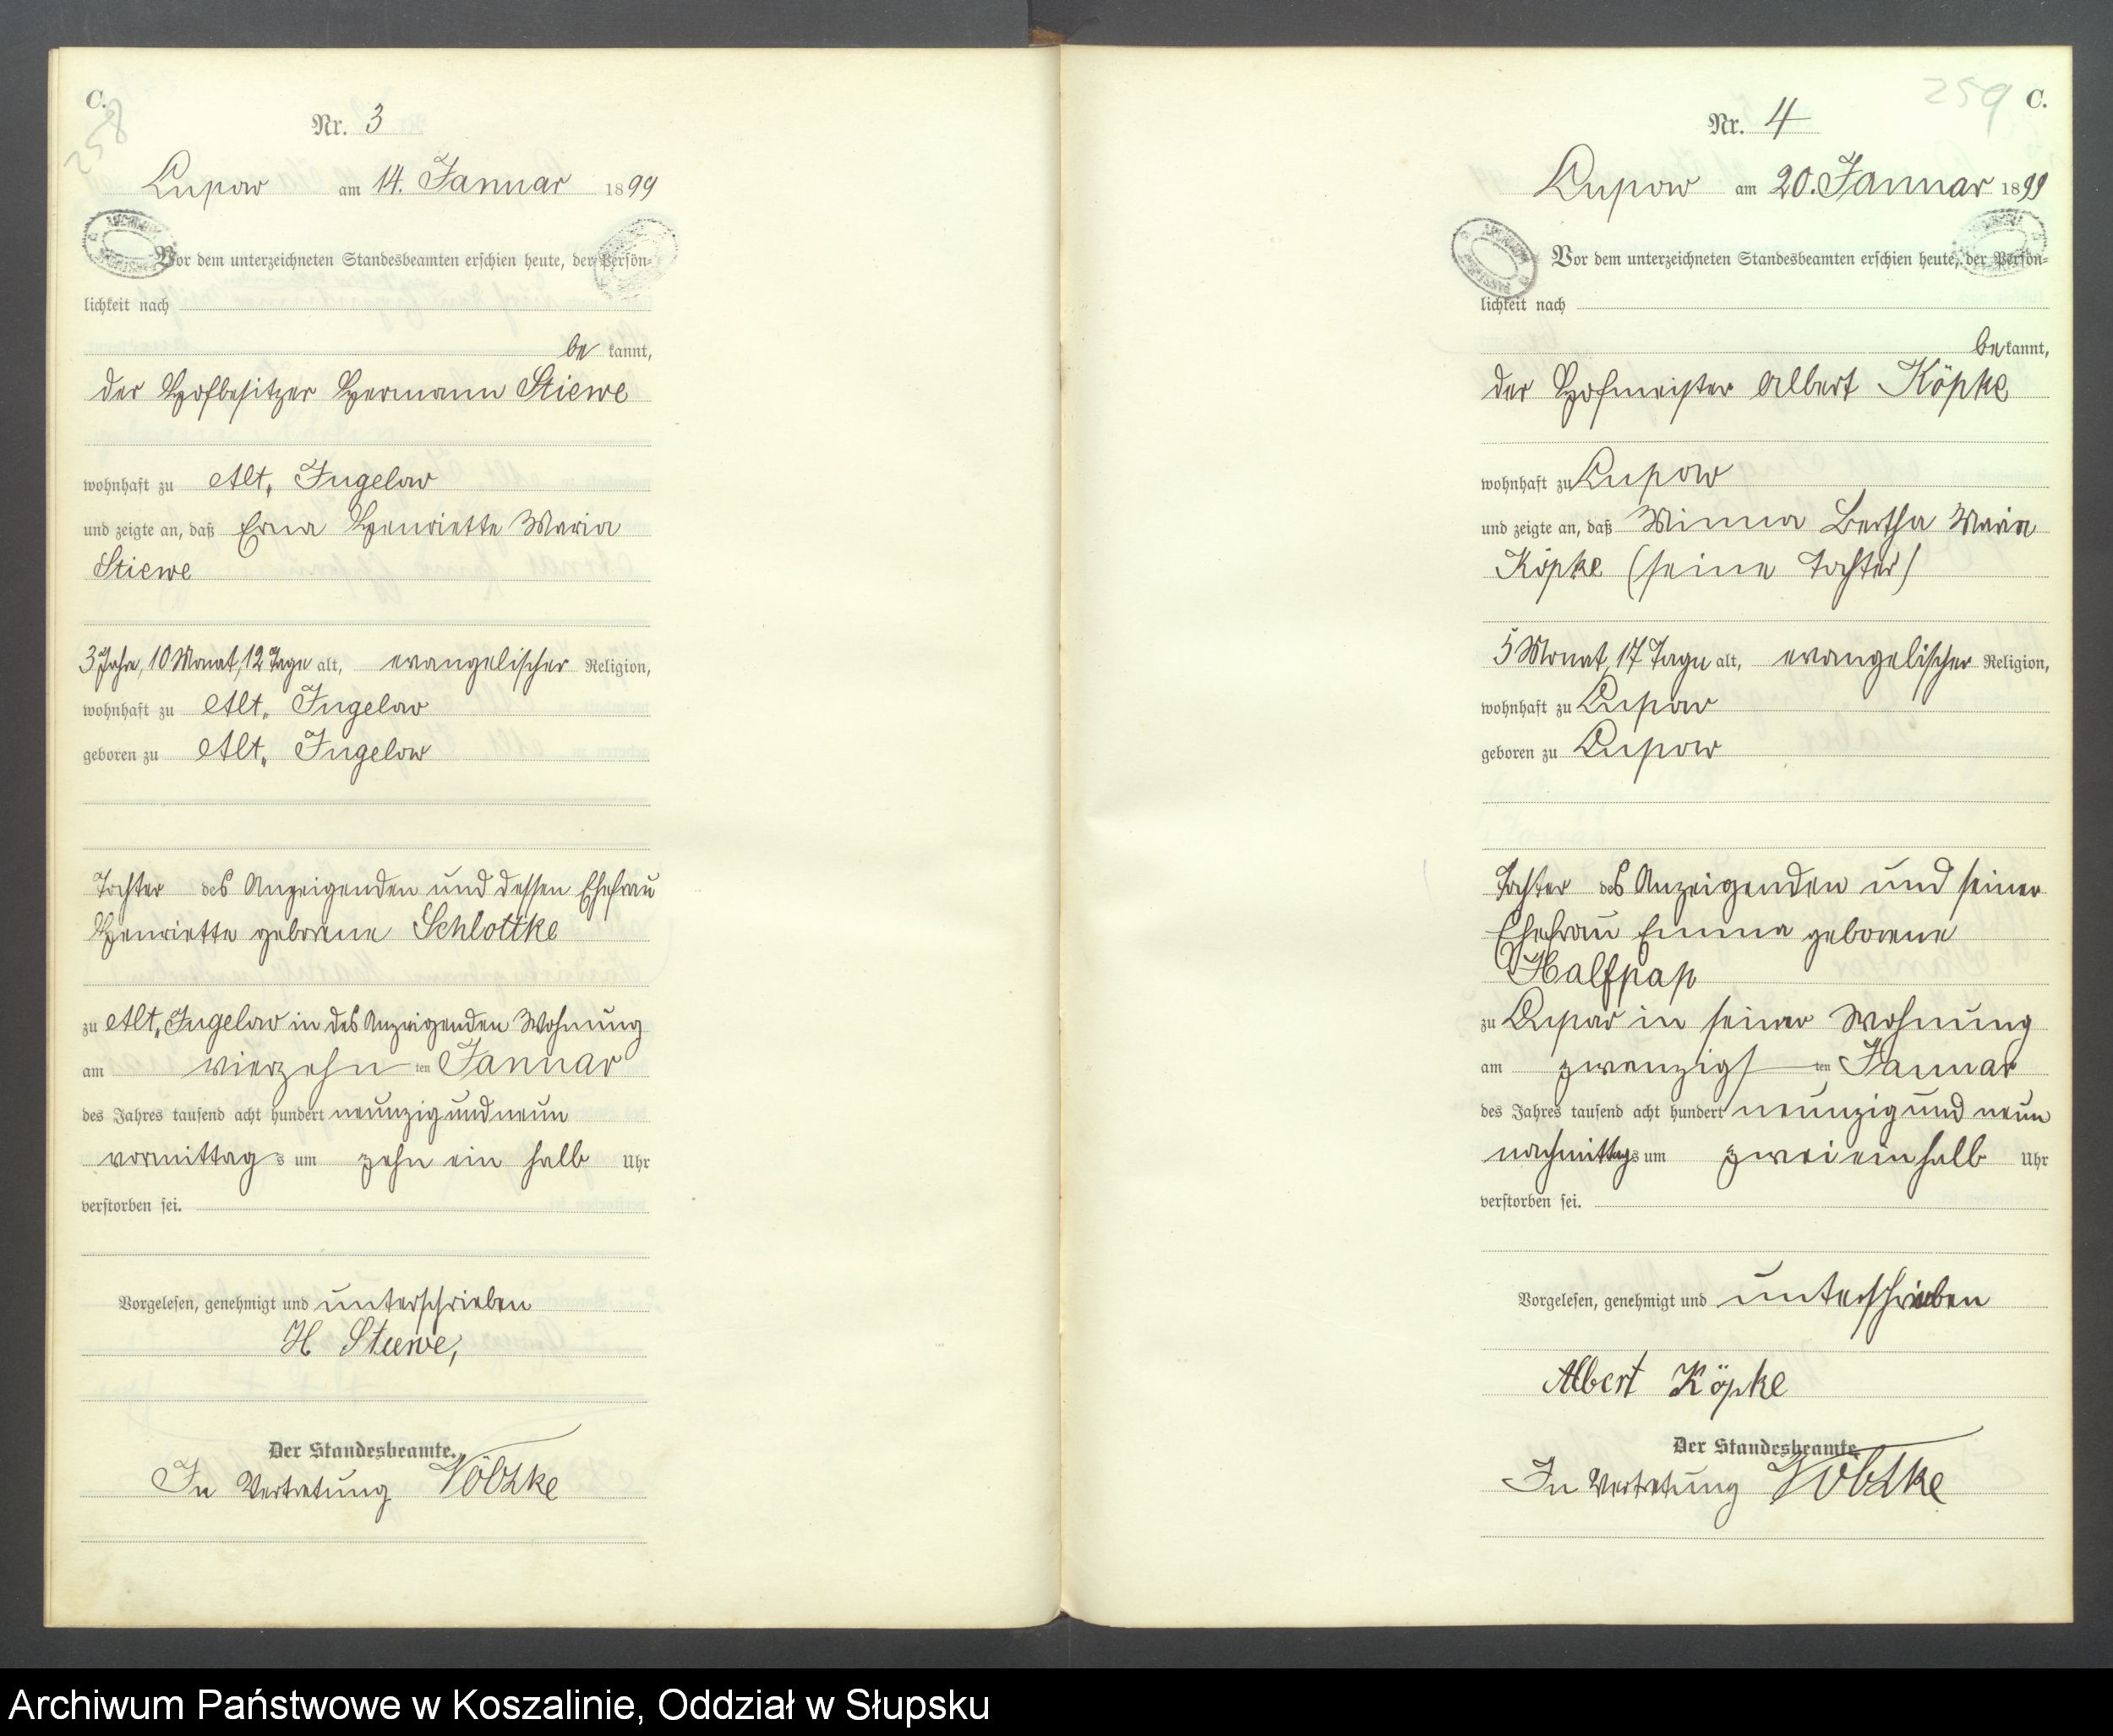 C.
258
Nr. 3
Lupow am 14. Januar 1899
Vor dem unterzeichneten Standesbeamten erschien heute, der Persön-
lichkeit nach
be kannt,
der Hofbesitzer Hermann Stiewe
wohnhaft zu Alt, Jugelow
und zeigte an, daß Erna Henriette Maria
Stiewe
3 Jahre, 10 Monat, 12 Tage alt, evangelischer Religion,
wohnhaft zu Alt, Jugelow
geboren zu Alt, Jugelow
Tochter des Anzeigenden und dessen Ehefrau
Henriette geborene Schlottke
zu Alt, Jugelow in des Anzeigenden Wohnung
am vierzehn ten Januar
des Jahres tausend acht hundert neunzig und neun
vormittag s um zehn ein halb Uhr
verstorben sei.
Vorgelesen, genehmigt und unterschrieben
H Stiewe,
Der Standesbeamte.
In Vertretung Wöbzke
259 C.
Nr. 4
Lupow am 20. Januar 1899
Vor dem unterzeichneten Standesbeamten erschien heute, der Persön-
lichkeit nach
be kannt,
der Hofmeister Albert Köpke
wohnhaft zu Lupow
und zeigte an, daß Minna Bertha Maria
Köpke (seine Tochter)
5 Monat, 17 Tage alt, evangelischer Religion,
wohnhaft zu Lupow
geboren zu Lupow
Tochter des Anzeigenden und seiner
Ehefrau Emma geborene
Halfpap
zu Lupow in seiner Wohnung
am zwanzigs ten Januar
des Jahres tausend acht hundert neunzig und neun
nachmittags um zwei ein halb Uhr
verstorben sei.
Vorgelesen, genehmigt und unterschrieben
Albert Köpke
Der Standesbeamte.
In Vertretung Wöbzke
Archiwum Państwowe w Koszalinie, Oddział w Słupsku